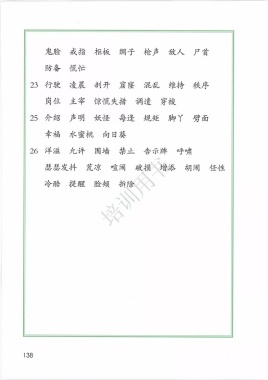 鬼脸 戒指 抠板 绸子 枪声 敌人 尸首
防备 慌忙
23 行驶 凌晨 剥开 窟窿 混乱 维持 秩序
岗位 主宰 惊慌失措 调遣 穿梭
25 介绍 声明 妖怪 每逢 规矩 脚丫 劈面
幸福 水蜜桃 向日葵
26 洋溢 允许 围墙 禁止 告示牌 呼啸
瑟瑟发抖 荒凉 喧闹 破损 增添 胡闹 任性
冷酷 提醒 脸颊 拆除
培训用书
138